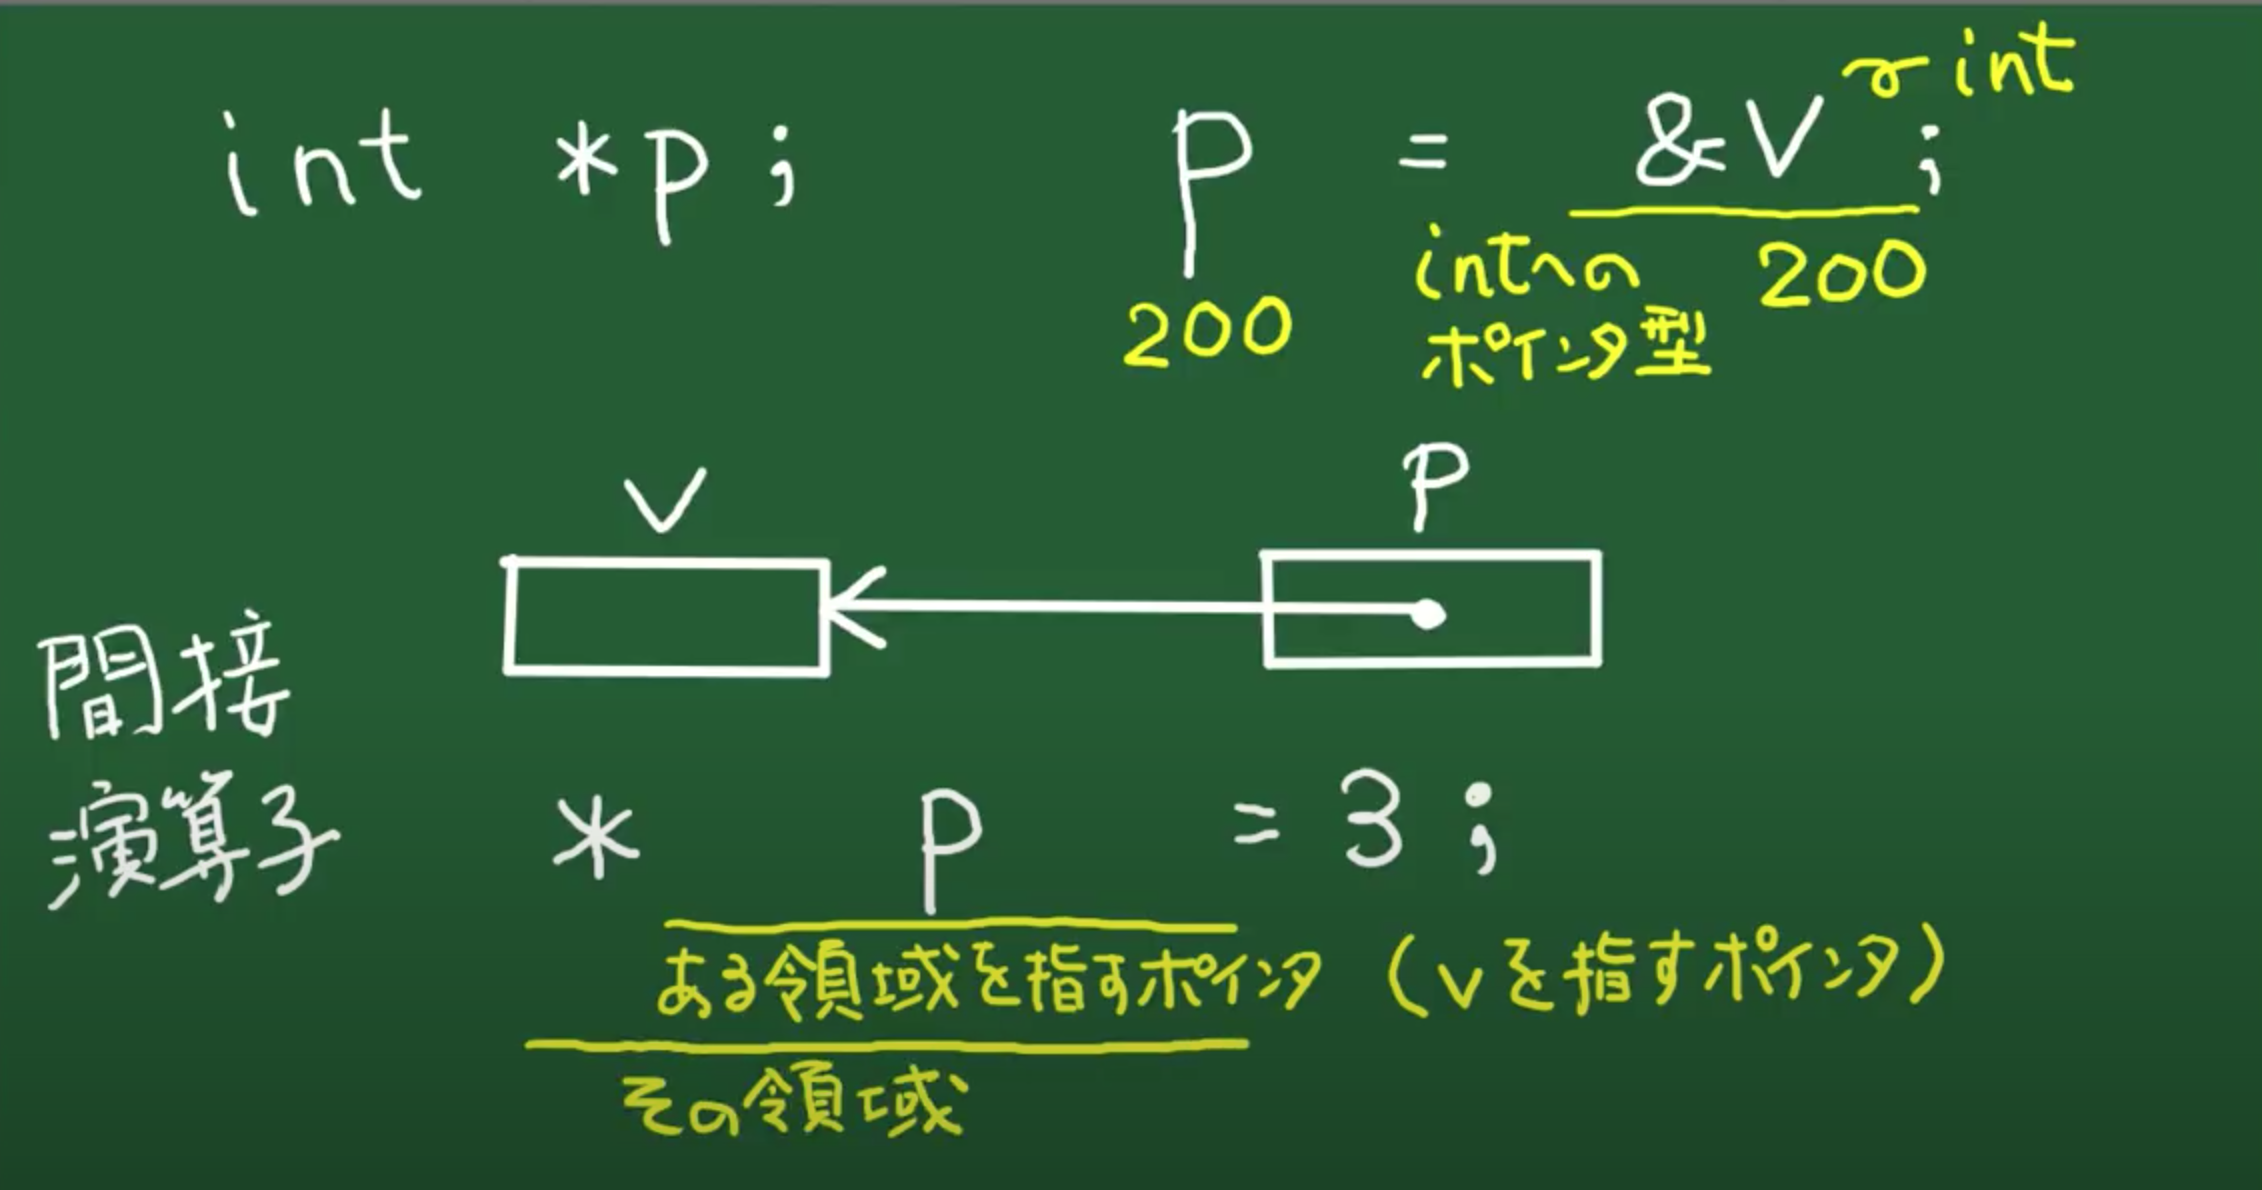 int *p;
p = &v;
int
intへの
ポインタ型
200
200
v
p
間接
演算子
* p = 3;
ある領域を指すポインタ (vを指すポインタ)
その領域